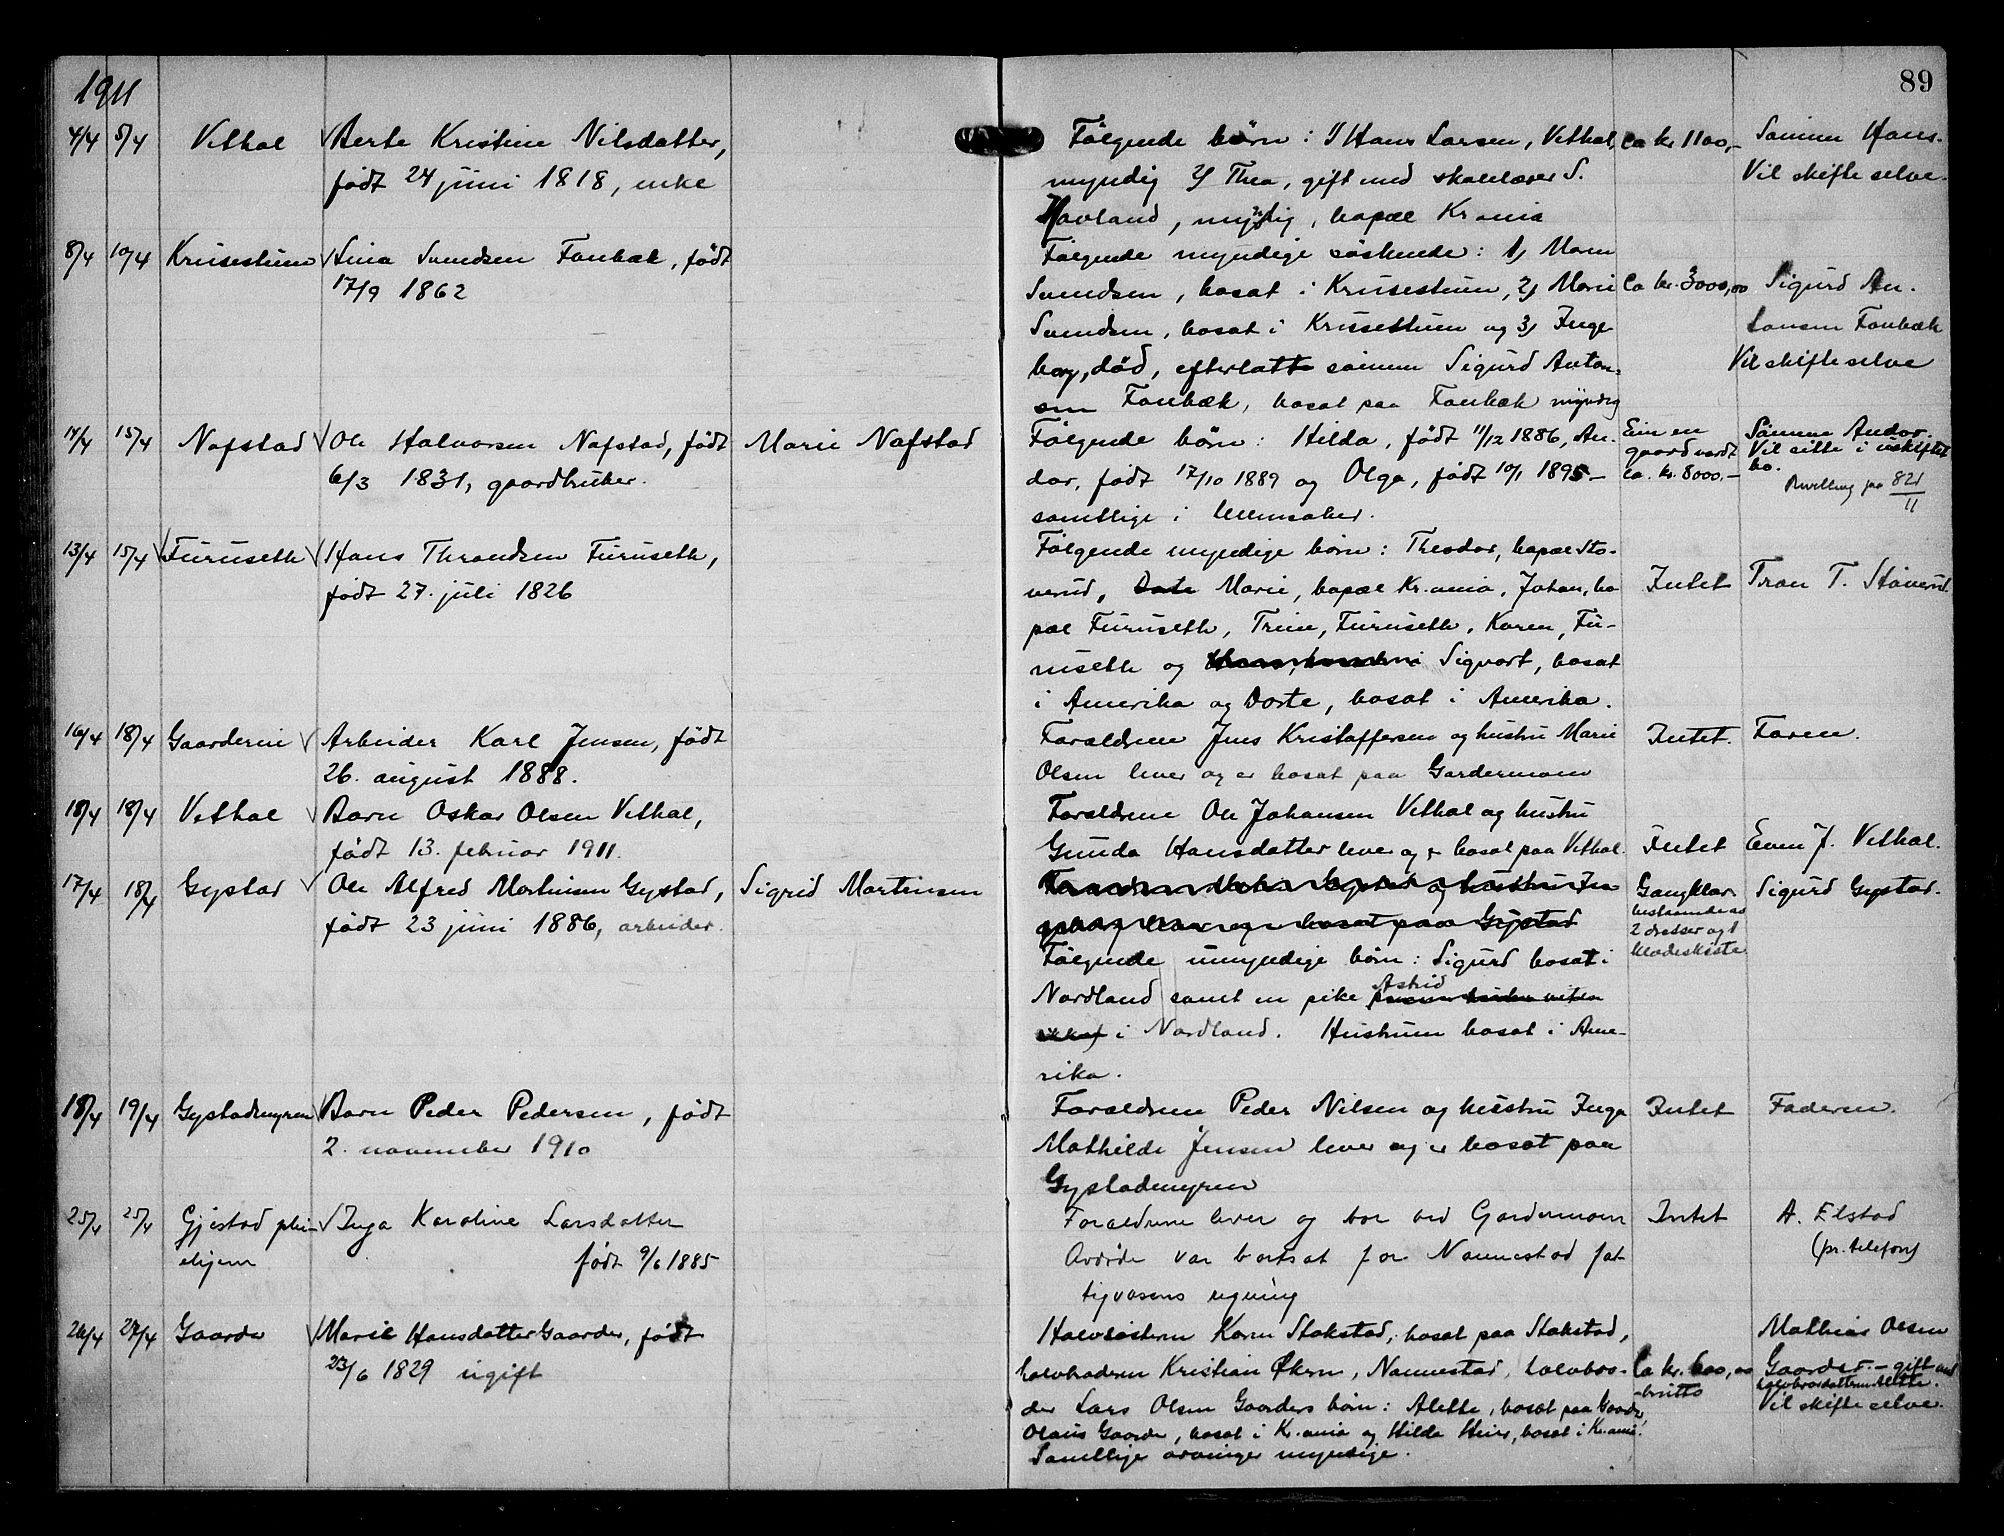 1911
89
4/4 5/4 Vethal Berte Kristine Nilsdatter, Følgende børn: 1/ Hans Larsen, Vethal, Ca kr. 1100,- Sønnen Hans.
født 24 juni 1818, enke myndig 2/ Thea, gift med skolelærer S. Vil skifte selve.
Havland, myndig, bopæl Kr.ania
8/4 10/4 Krusestuen Nina Svendsen Fonbæk, født Følgende myndige søskende: 1/ Maren
17/9 1862 Svendsen, bosat i Krusestuen, 2/ Marie Ca kr. 3000,00 Sigurd An-
Svendsen, bosat i Krusestuen og 3/ Inge- tonsen Fonbæk
borg, død, efterlatt sønnen Sigurd Anton- Vil skifte selve
sen Fonbæk, bosat paa Fonbæk myndig
14/4 15/4 Nafstad Ole Halvorsen Nafstad, født Marie Nafstad Følgende børn: Hilda, født 11/12 1886, An- Eier en Sønnen Andor.
6/3 1831, gaardbruker. dor, født 17/10 1889 og Olga, født 10/1 1895- gaard værdt Vil sitte i uskiftet
samtlige i Ullensaker. ca. kr. 8000.- bo.
Bevilling paa 821/11
13/4 15/4 Furuseth Hans Throndsen Furuseth, Følgende myndige børn: Theodor, bopæl Stø-
født 27. juli 1826 verud, Marie, bopæl Kr.ania, Johan, bo- Intet Tron T. Støverud.
pæl Furuseth, Trine, Furuseth, Karen, Fu-
ruseth og Sigvart, bosat
i Amerika og Dorte, bosat i Amerika.
16/4 18/4 Gaardereie Arbeider Karl Jensen, født Forældrene Jens Kristoffersen og hustru Marie Intet. Faren.
26. august 1888. Olsen lever og er bosat paa Gardermoen
18/4 18/4 Vethal Barn Oskar Olsen Vethal, Forældrene Ole Johansen Vethal og hustru
født 13. februar 1911. Gunda Hansdatter lever og er bosat paa Vethal. Intet Even J. Vethal.
17/4 18/4 Gystad Ole Alfred Martinsen Gystad, Sigrid Martensen Gangklær Sigurd Gystad.
født 23 juni 1886, arbeider. bestaaende av
2 dresser og 1
klædeskiste
Følgende umyndige børn: Sigurd bosat i
Nordland samt en pike Astrid
i Nordland. Hustruen bosat i Ame-
rika.
18/4 19/4 Gystadmyren Barn Peder Pedersen, født Forældrene Peder Nilsen og hustru Inga Intet Faderen.
2. november 1910 Mathilde Jensen lever og er bosat paa
Gystadmyren
25/4 25/4 Gjestad plei- Inga Karoline Larsdatter Forældrene lever og bor ved Gardermoen Intet A. Elstad
ehjem født 9/6 1885 Avdøde var bortsat for Nannestad fat- (pr. telefon)
tigvæsens regning
26/4 27/4 Gaarder Marie Hansdatter Gaarder, født Halvsøsteren Karen Stokstad, bosat paa Stokstad, Mathias Olsen
23/6 1829 ugift halvbroderen Kristian Økern, Nannestad, halvbro- Ca kr. 600,00 Gaarder - gift med
der Lars Olsen Gaarders børn: Alette, bosat paa Gaarder, brutto halvbrordatteren Alette.
Olaus Gaarder, bosat i Kr.ania og Hilda Heier, bosat i Kr.ania. Vil skifte selve.
Samtlige arvinger myndige.